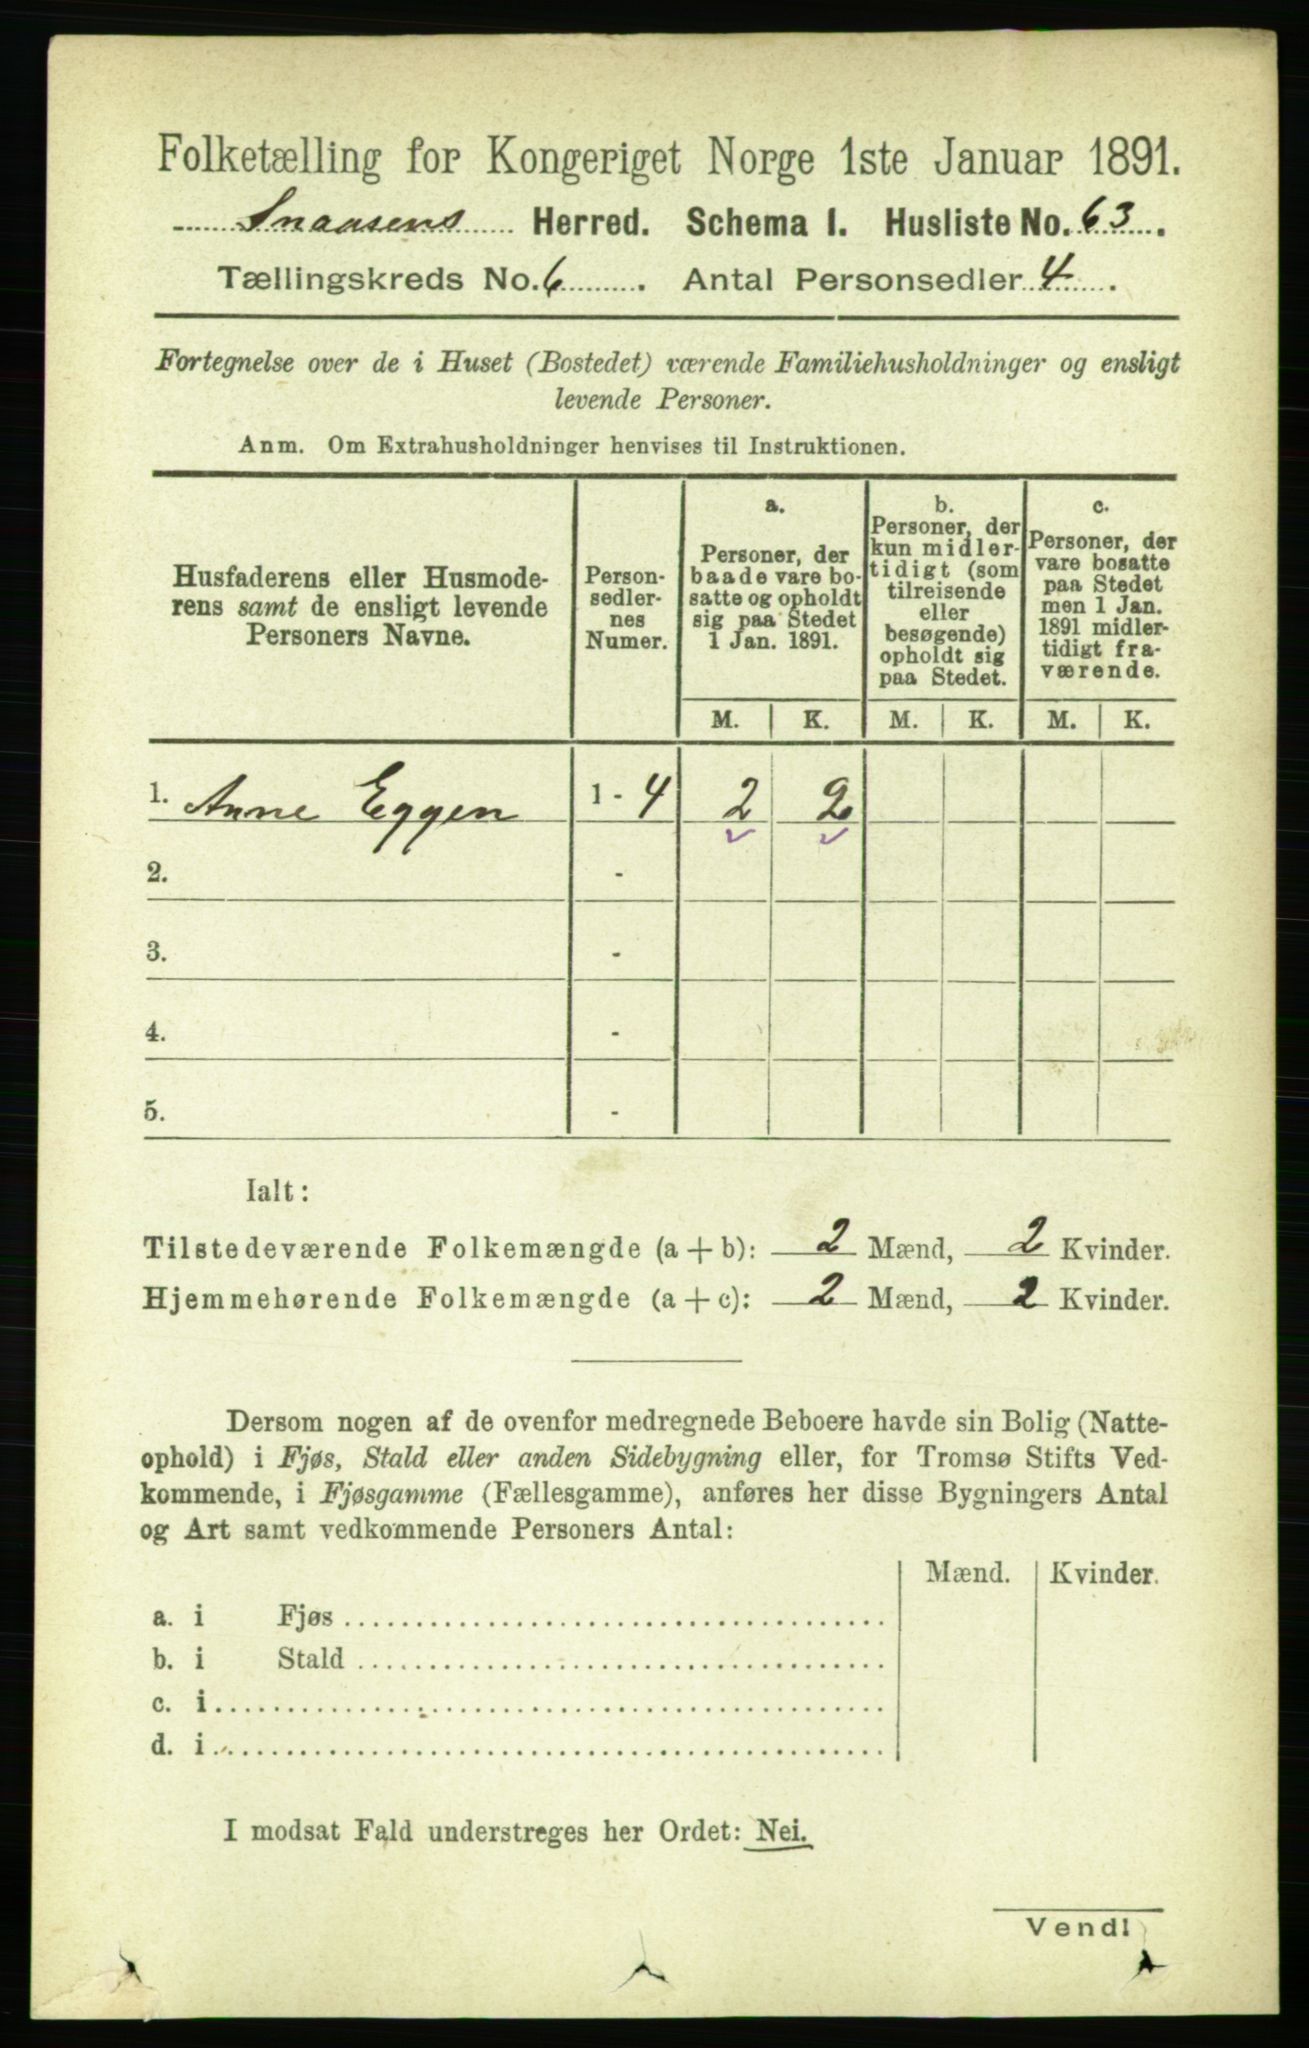 Folketælling for Kongeriget Norge 1ste Januar 1891.
Snaasens Herred. Schema I. Husliste No. 63.
Tællingskreds No. 6. Antal Personsedler 4.
Fortegnelse over de i Huset (Bostedet) værende Familiehusholdninger og ensligt
levende Personer.
Anm. Om Extrahusholdninger henvises til Instruktionen.
Husfaderens eller Husmode-
rens samt de ensligt levende
Personers Navne.
Person-
sedler-
nes
Numer.
a.
Personer, der
baade vare bo-
satte og opholdt
sig paa Stedet
1 Jan. 1891.
b.
Personer, der
kun midler-
tidigt (som
tilreisende
eller
besøgende)
opholdt sig
paa Stedet.
c.
Personer, der
vare bosatte
paa Stedet
men 1 Jan.
1891 midler-
tidigt fra-
værende.
M. K. M. K. M. K.
1. Anne Eggen 1 - 4 2 2
2. -
3. -
4. -
5. -
Ialt:
Tilstedeværende Folkemængde (a + b): 2 Mænd, 2 Kvinder.
Hjemmehørende Folkemængde (a + c): 2 Mænd, 2 Kvinder.
Dersom nogen af de ovenfor medregnede Beboere havde sin Bolig (Natte-
ophold) i Fjøs, Stald eller anden Sidebygning eller, for Tromsø Stifts Ved-
kommende, i Fjøsgamme (Fællesgamme), anføres her disse Bygningers Antal
og Art samt vedkommende Personers Antal:
Mænd. Kvinder.
a. i Fjøs
b. i Stald
c. i
d. i
I modsat Fald understreges her Ordet: Nei.
Vend!